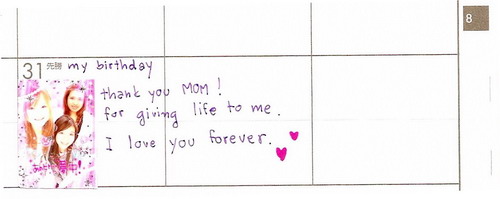 8
31 先勝 my birthday
thank you MOM !
for giving life to me.
I love you forever.